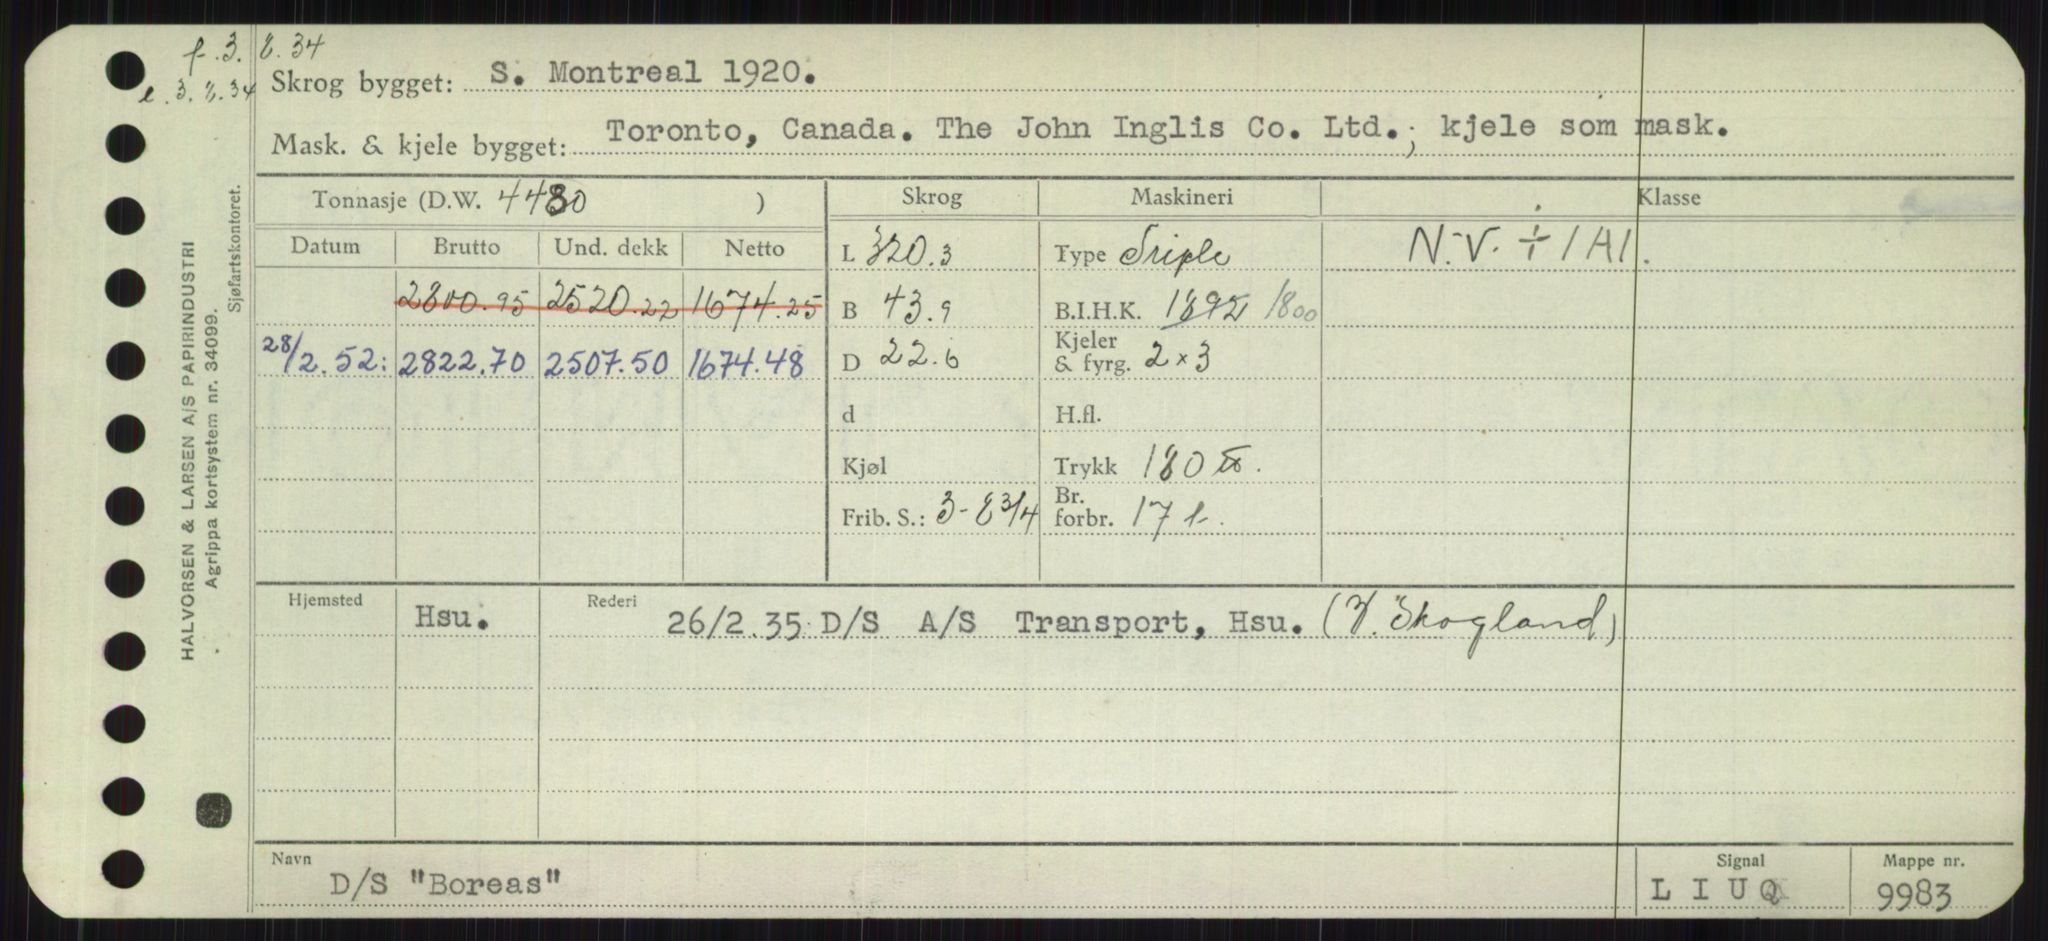 f. 3. 8. 34
e. 3. 8. 34
Skrog bygget: S. Montreal 1920.
Mask. & kjele bygget: Toronto, Canada. The John Inglis Co. Ltd.; kjele som mask.
Tonnasje (D.W. 4480 ) Skrog Maskineri Klasse
Datum Brutto Und. dekk Netto L 320.3 Type Triple N.V. ÷ 1A1.
2800.95 2520.22 1674.25 B 43.9 B.I.H.K. 1892 1800
28/2.52: 2822.70 2507.50 1674.48 D 22.6 Kjeler & fyrg. 2 x 3
d H.fl.
Kjøl Trykk 180 lb.
Frib. S.: 3-8 3/4 Br. forbr. 17 t.
Hjemsted Hsu. Rederi 26/2.35 D/S A/S Transport, Hsu. (V. Skogland)
Navn D/S "Boreas" Signal L I U Q Mappe nr. 9983
HALVORSEN & LARSEN A/S PAPIRINDUSTRI
Agrippa kortsystem nr. 34099.
Sjøfartskontoret.